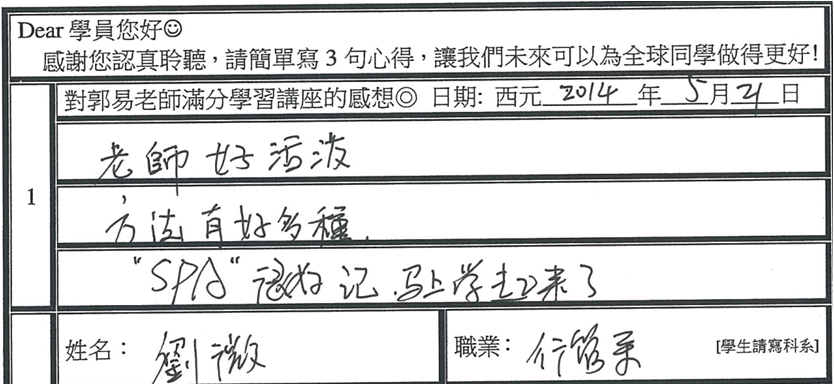 Dear 學員您好☺
感謝您認真聆聽，請簡單寫 3 句心得，讓我們未來可以為全球同學做得更好!
對郭易老師滿分學習講座的感想◎ 日期: 西元 2014 年 5 月 21 日
老師好活泼
1
方法有好多種.
"SPA"很好记.马上学起来了
姓名： 劉微
職業： 行管系 [學生請寫科系]